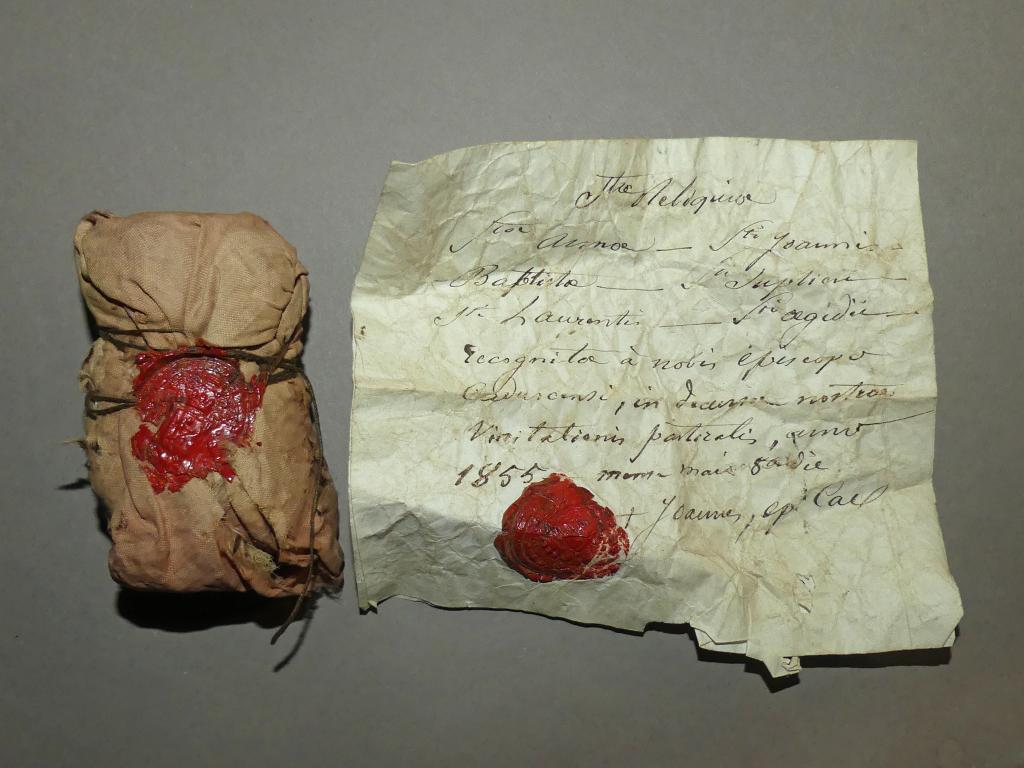 Stae Reliquiae
Stae Annae — Sti Joannis
Baptistae — Sti Suplicii —
Sti Laurentii — Sti Aegidii —
recognitae à nobis episcopo
Cadurcensi, in decursu nostrae
Visitationis pastoralis, anno
1855 mense maio 8a die
+ Joannes, ep. Cad